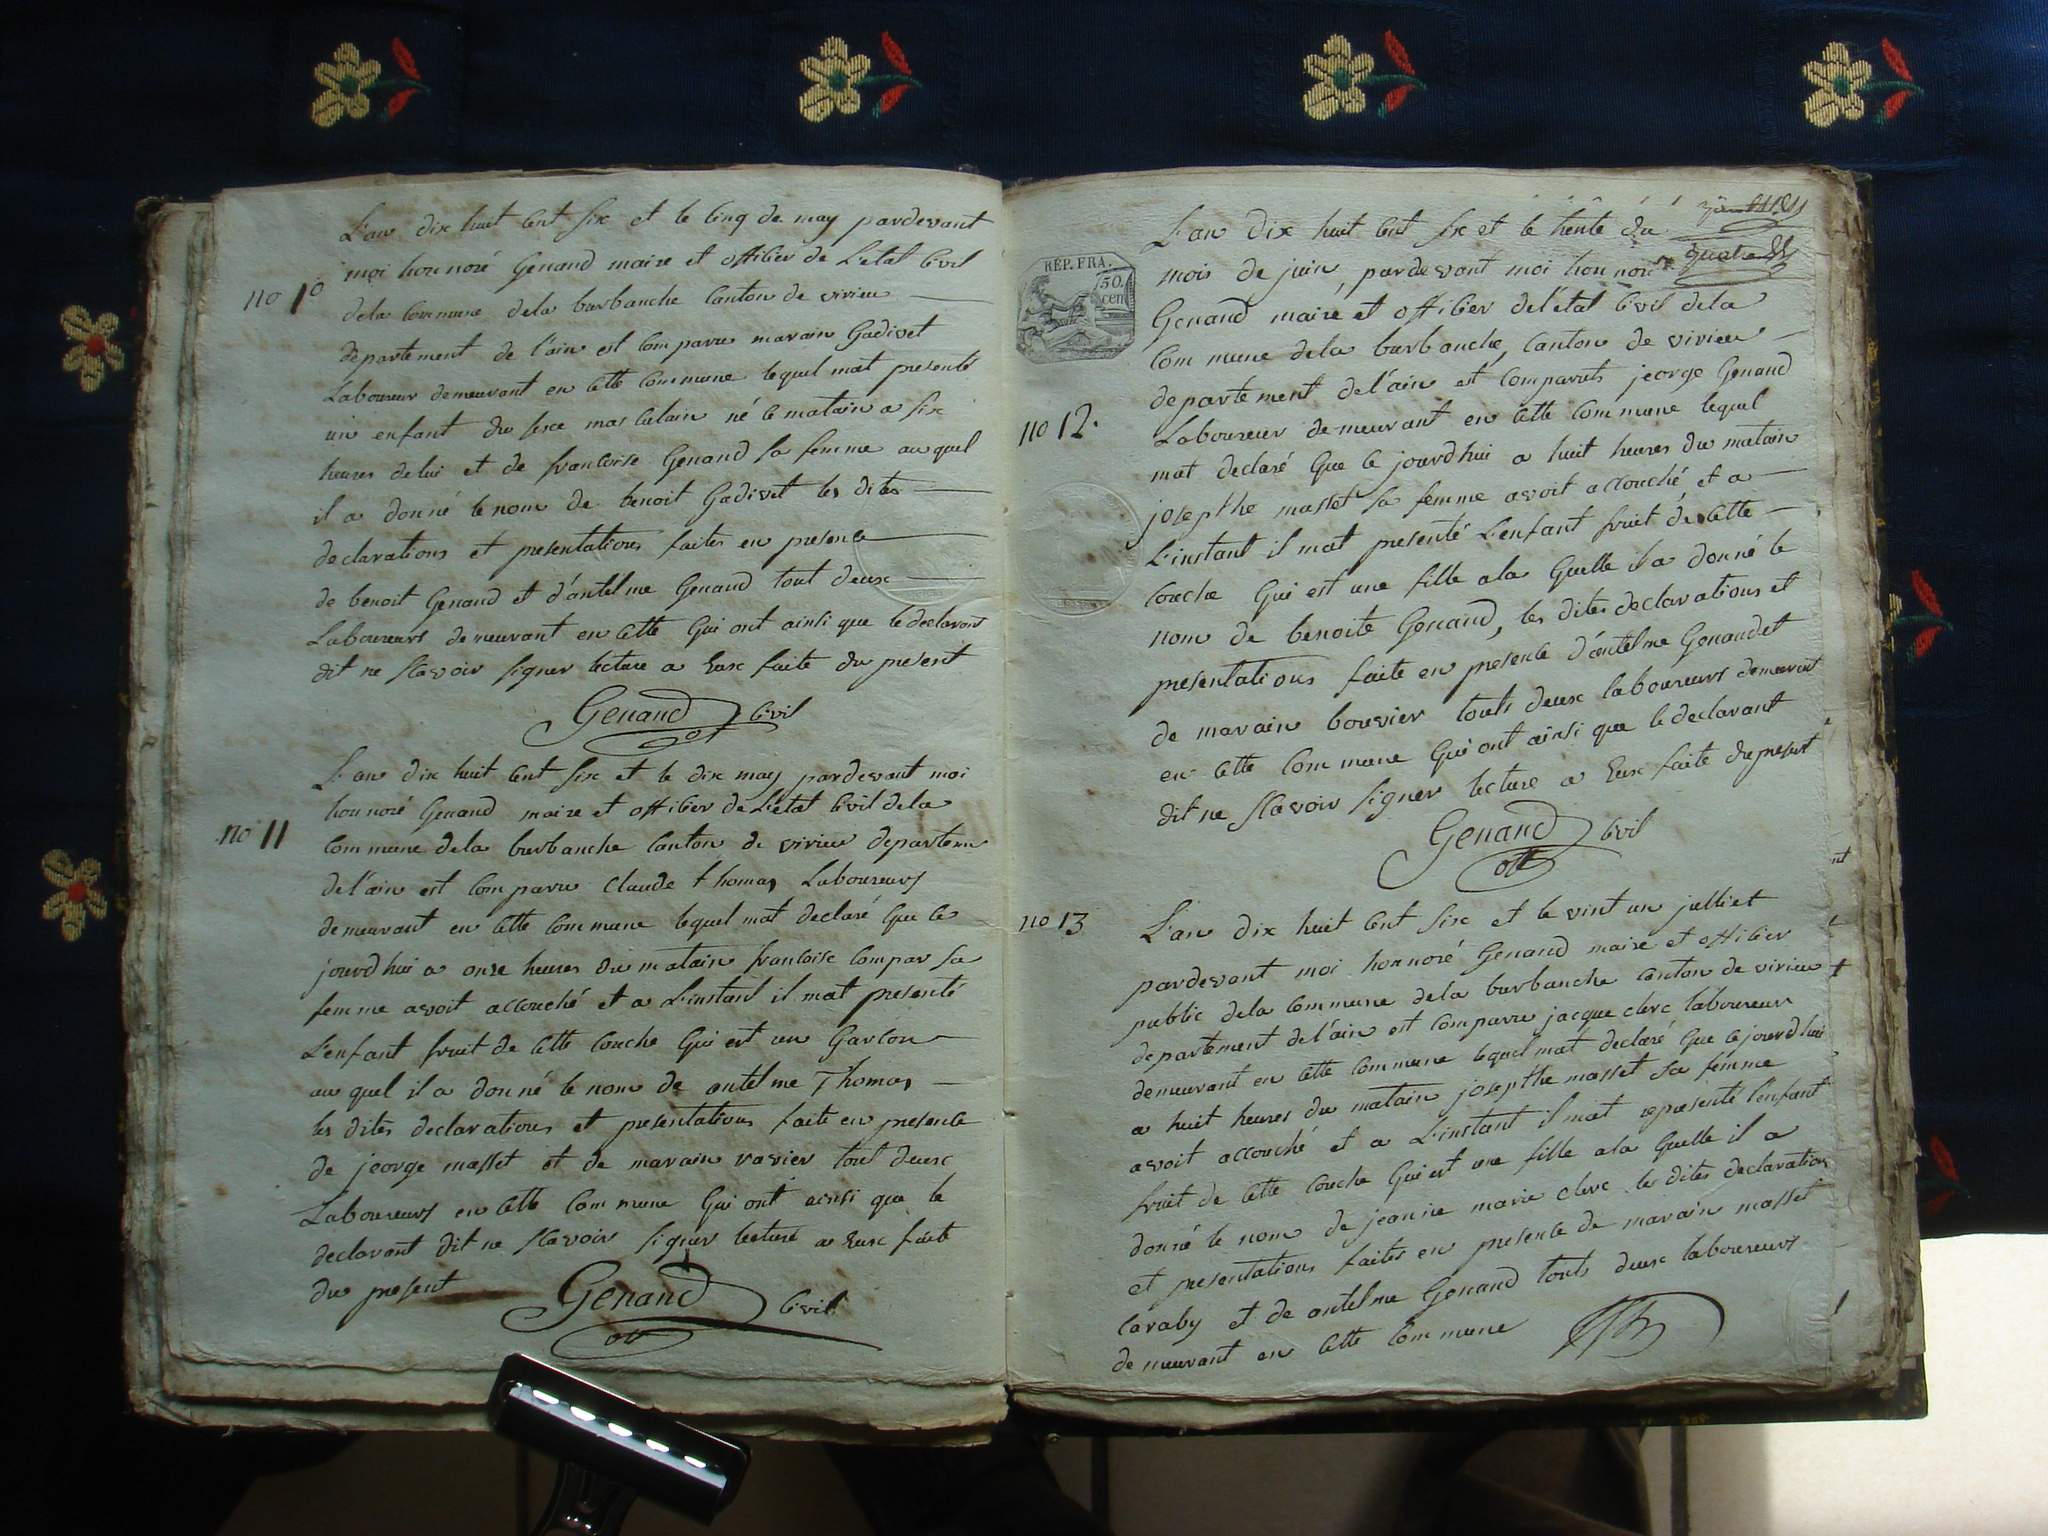 L'an dix huit cent six et le cinq de may pardevant
moi honnoré Genand maire et officier de L'etat civil
no 10
dela commune dela burbanche canton de virieu
departement de l'ain est comparu marain Gadivet
Laboureur demeurant en cette commune lequel mat presenté
un enfant du sexe masculain né ce matain a six
heures de lui et de francoise Genand sa femme au quel
il a donné le nom de benoit Gadivet les dites
declarations et presentations faites en presence
de benoit Genand et d'antelme Genand tout deux
Laboureurs demeurant en cette qui ont ainsi que le declarant
dit ne scavoir signer lecture a Eux faite du present
Genand civil
L'an dix huit cent six et le dix may pardevant moi
honnoré Genand maire et officier de L'etat civil dela
no 11
commune dela burbanche canton de virieu departem
de l'ain est comparu claude thomas Laboureurs
demeurant en cette commune lequel mat declaré que ce
jourdhui a onze heures du matain francoise compar sa
femme avoit accouché et a L'instant il mat presenté
L'enfant fruit de cette couche qui est un Garcon
au quel il a donné le nom de antelme Thomas
les dites declarations et presentations faite en presence
de jeorge masset et de marain vavier tout deux
Laboureurs en cette commune qui ont ainsi que le
declarant dit ne scavoir signer lecture a Eux faite
du present
Genand civil
L'an dix huit cent six et le trente du
quatre
REP. FRA.
50.
cen
mois de juin, pardevant moi honnoré
Genand maire et officier de l'état civil dela
commune dela burbanche, canton de virieu
departement de l'ain est comparuts jeorge Genand
no 12.
Laboureur demeurant en cette commune lequel
mat declaré que ce jourdhui a huit heures du matain
josepthe masset sa femme avoit accouché et a
L'instant il mat presenté L'enfant fruit de cette
couche qui est une fille ala quelle il a donné le
nom de benoite Genand, les dites declarations et
presentations faite en presence d'antelme Genand et
de marain bouvier touts deux laboureurs demeurant
en cette commune qui ont ainsi que le declarant
dit ne scavoir signer lecture a Eux faite du present
Genand civil
no 13
L'an dix huit cent six et le vint un julliet
pardevant moi honnoré Genand maire et officier
public dela commune dela burbanche canton de virieu
departement de l'ain est comparu jacque clerc laboureur
demeurant en cette commune lequel mat declaré que ce jourdhui
a huit heures du matain josepthe masset sa femme
avoit accouché et a L'instant il mat representé l'enfant
fruit de cette couche qui est une fille ala quelle il a
donné le nom de jeanne marie clerc les dites declarations
et presentations faites en presence de marain masset
caraby et de antelme Genand touts deux laboureurs
demeurant en cette commune